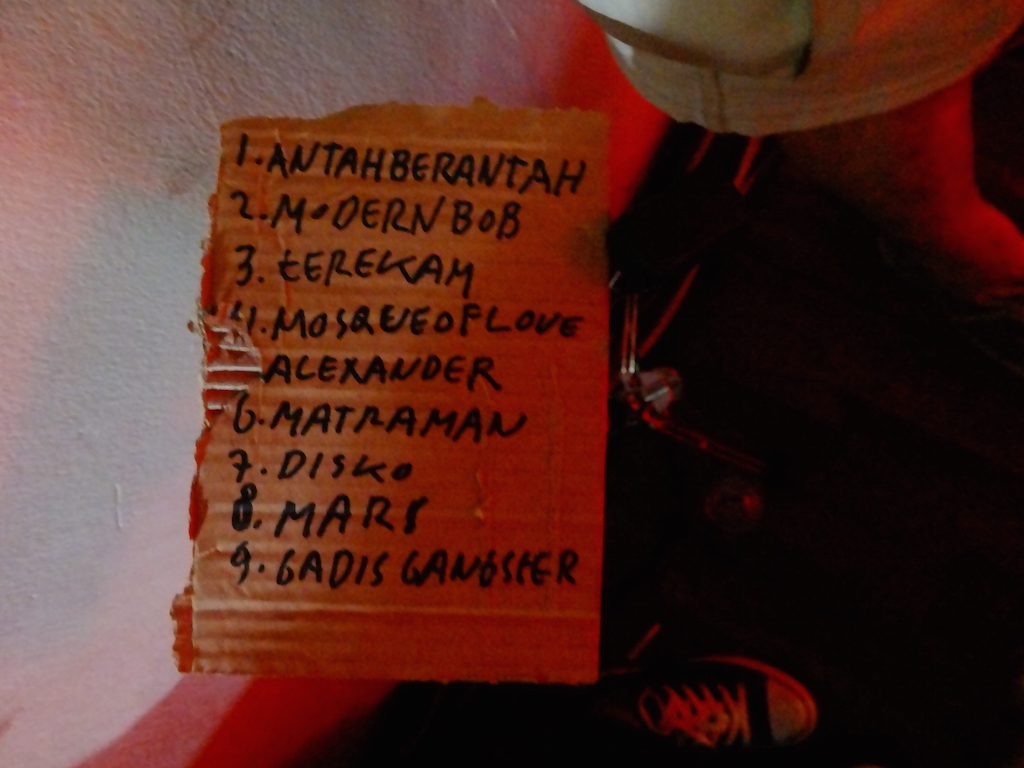 1. ANTAHBERANTAH
2. MODERN BOB
3. tEREKAM
4. MOSQUE OF LOVE
ALEXANDER
6. MATRAMAN
7. DISKO
8. MARS
9. GADIS GANGSTER